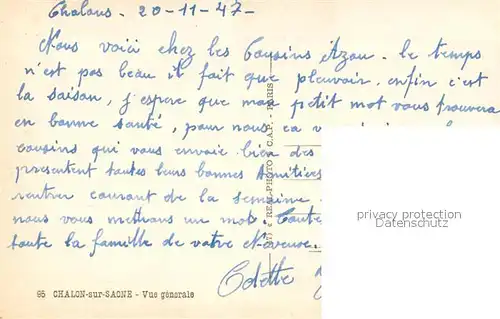 Chalons - 20-11-47-
Nous voici chez les Cousins Azou. le temps
n'est pas beau il fait que pleuvoir, enfin c'est
la saison, j'espere que mon petit mot vous trouvera
en bonne santé, pour nous ca
cousins qui vous envoie bien des
presentent toutes leurs bonnes Amitiés
rentrer courant de la semaine
nous vous mettrons un mot. Toute
toute la famille de votre
Odette
95 CHALON-sur-SAONE - Vue générale
REAL-PHOTO C.A.P. - PARIS
privacy protection
Datenschutz